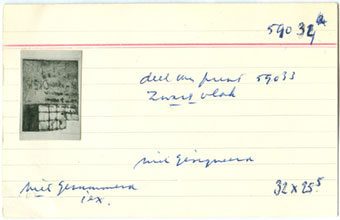 59032a
deel van prent 59033
Zwart vlak
niet Gesigneerd
niet Genummerd
1 ex.
32 x 25⁵